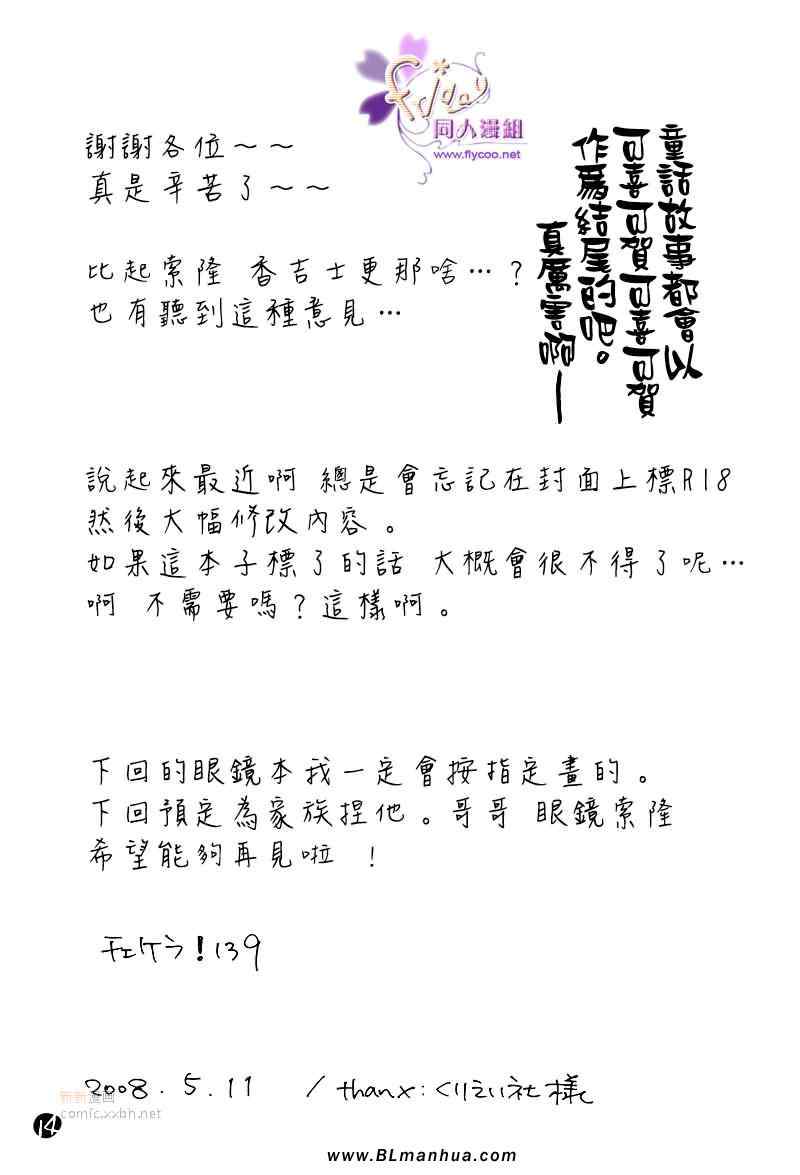 Friday
同人漫組
www.flycoo.net
童話故事都會以
可喜可賀可喜可賀
作爲結尾的吧。
真厲害啊—
謝謝各位～～
真是辛苦了～～
比起索隆 香吉士更那啥…？
也有聽到這種意見…
說起來最近啊 總是會忘記在封面上標R18
然後大幅修改內容。
如果這本子標了的話 大概會很不得了呢…
啊 不需要嗎？這樣啊。
下回的眼鏡本我一定會按指定畫的。
下回預定為家族捏他。哥哥 眼鏡索隆
希望能夠再見啦 ！
チェケラ！139
2008．5．11 / thanx：くりえい社様
新新漫画
comic.xxbh.net
14
www.BLmanhua.com